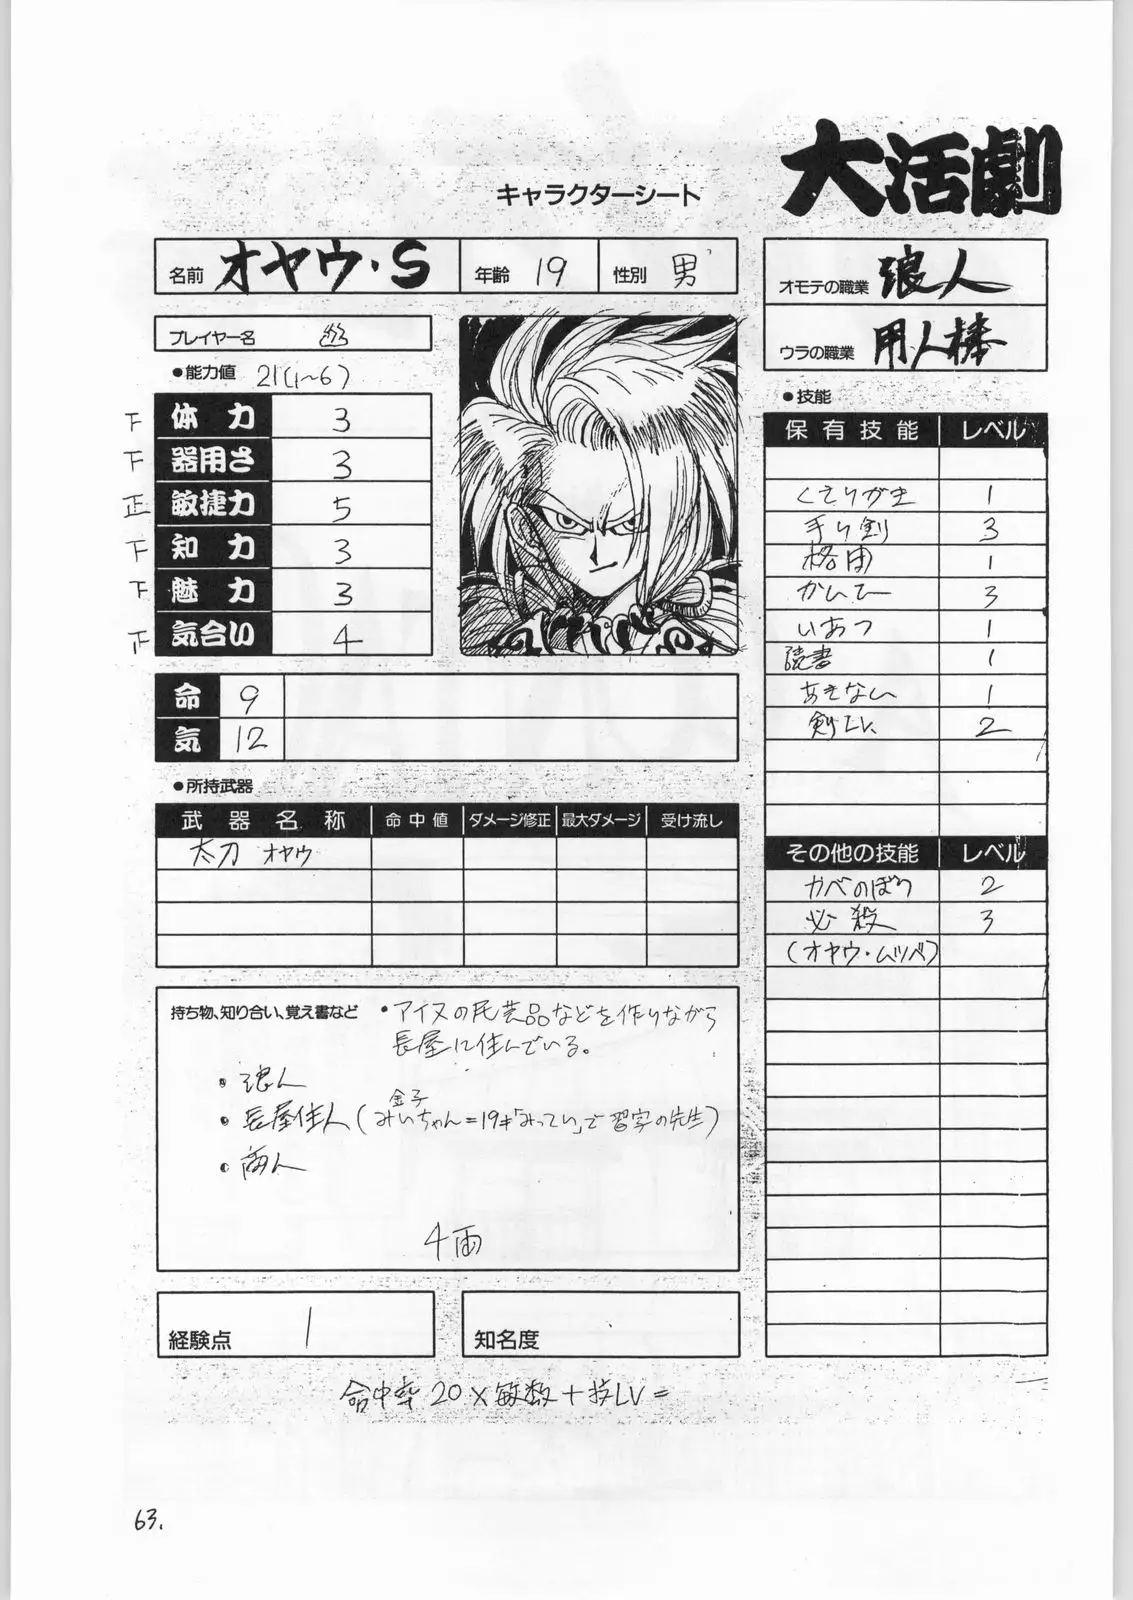 大活劇
キャラクターシート
名前 オヤウ・S 年齢 19 性別 男
オモテの職業 浪人
ウラの職業 用人棒
プレイヤー名
●能力値 21(1~6)
下 体力 3
下 器用さ 3
正 敏捷力 5
下 知力 3
下 魅力 3
正 気合い 4
命 9
気 12
●技能
保有技能 レベル
くさりがま 1
手り剣 3
格闘 1
かんせー 3
いあつ 1
読書 1
あきない 1
剣じゅつ 2
その他の技能 レベル
カベのぼり 2
必殺 3
(オヤウ・ムツベ)
●所持武器
武器名称 命中値 ダメージ修正 最大ダメージ 受け流し
太刀 オヤウ
持ち物、知り合い、覚え書など
・アイヌの民芸品などを作りながら
長屋に住んでいる。
・浪人
・長屋住人(みいちゃん=19才「みってい」で習字の先生)
金子
・商人
4両
経験点 1
知名度
命中率 20×敏数+技LV=
63.